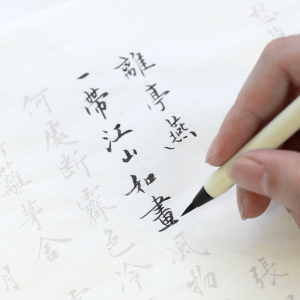 離亭燕 張
一帶江山如畫風物
何處斷霽色冷
籬茅舍